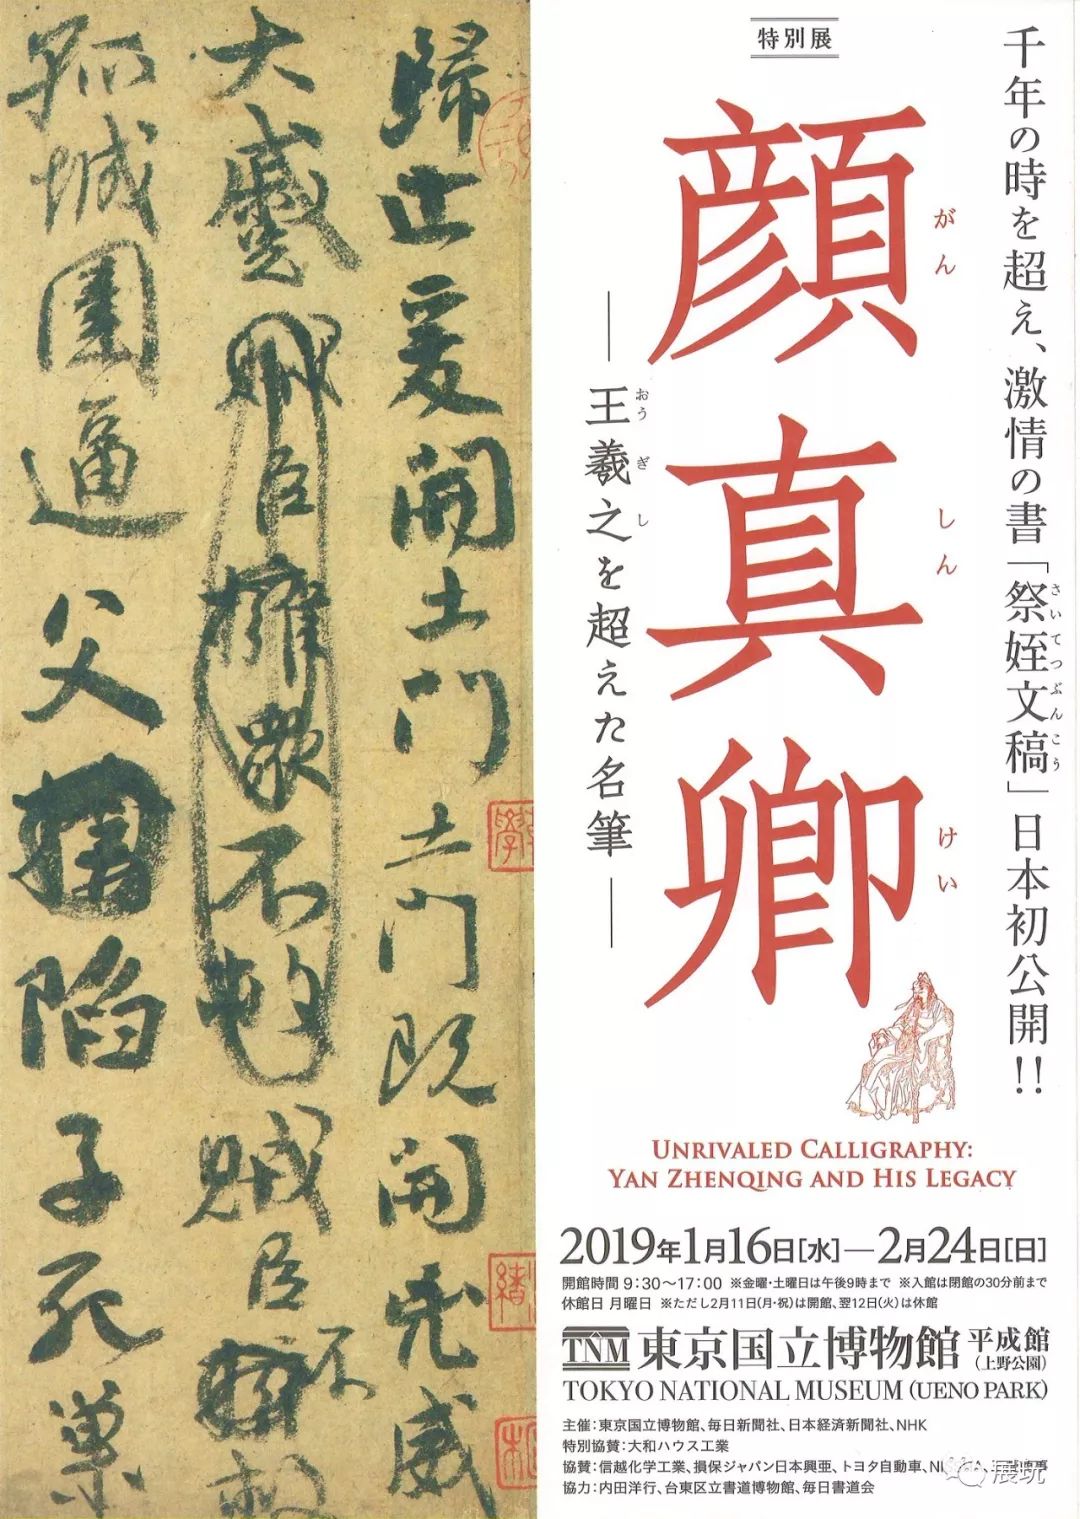 特別展
千年の時を超え、激情の書「祭姪文稿」日本初公開!!
さいてつぶんこう
顔真卿
がん しん けい
王羲之を超えた名筆
おう ぎ し
歸止爰開土門土門既開兇威
大蹙賊臣擁衆不救賊臣不
孤城圍逼父陷子死巢
UNRIVALED CALLIGRAPHY:
YAN ZHENQING AND HIS LEGACY
2019年1月16日[水]—2月24日[日]
開館時間 9:30〜17:00 ※金曜・土曜日は午後9時まで ※入館は閉館の30分前まで
休館日 月曜日 ※ただし2月11日(月・祝)は開館、翌12日(火)は休館
TNM 東京国立博物館 平成館
(上野公園)
TOKYO NATIONAL MUSEUM (UENO PARK)
主催:東京国立博物館、毎日新聞社、日本経済新聞社、NHK
特別協賛:大和ハウス工業
協賛:信越化学工業、損保ジャパン日本興亜、トヨタ自動車、
協力:内田洋行、台東区立書道博物館、毎日書道会
展玩